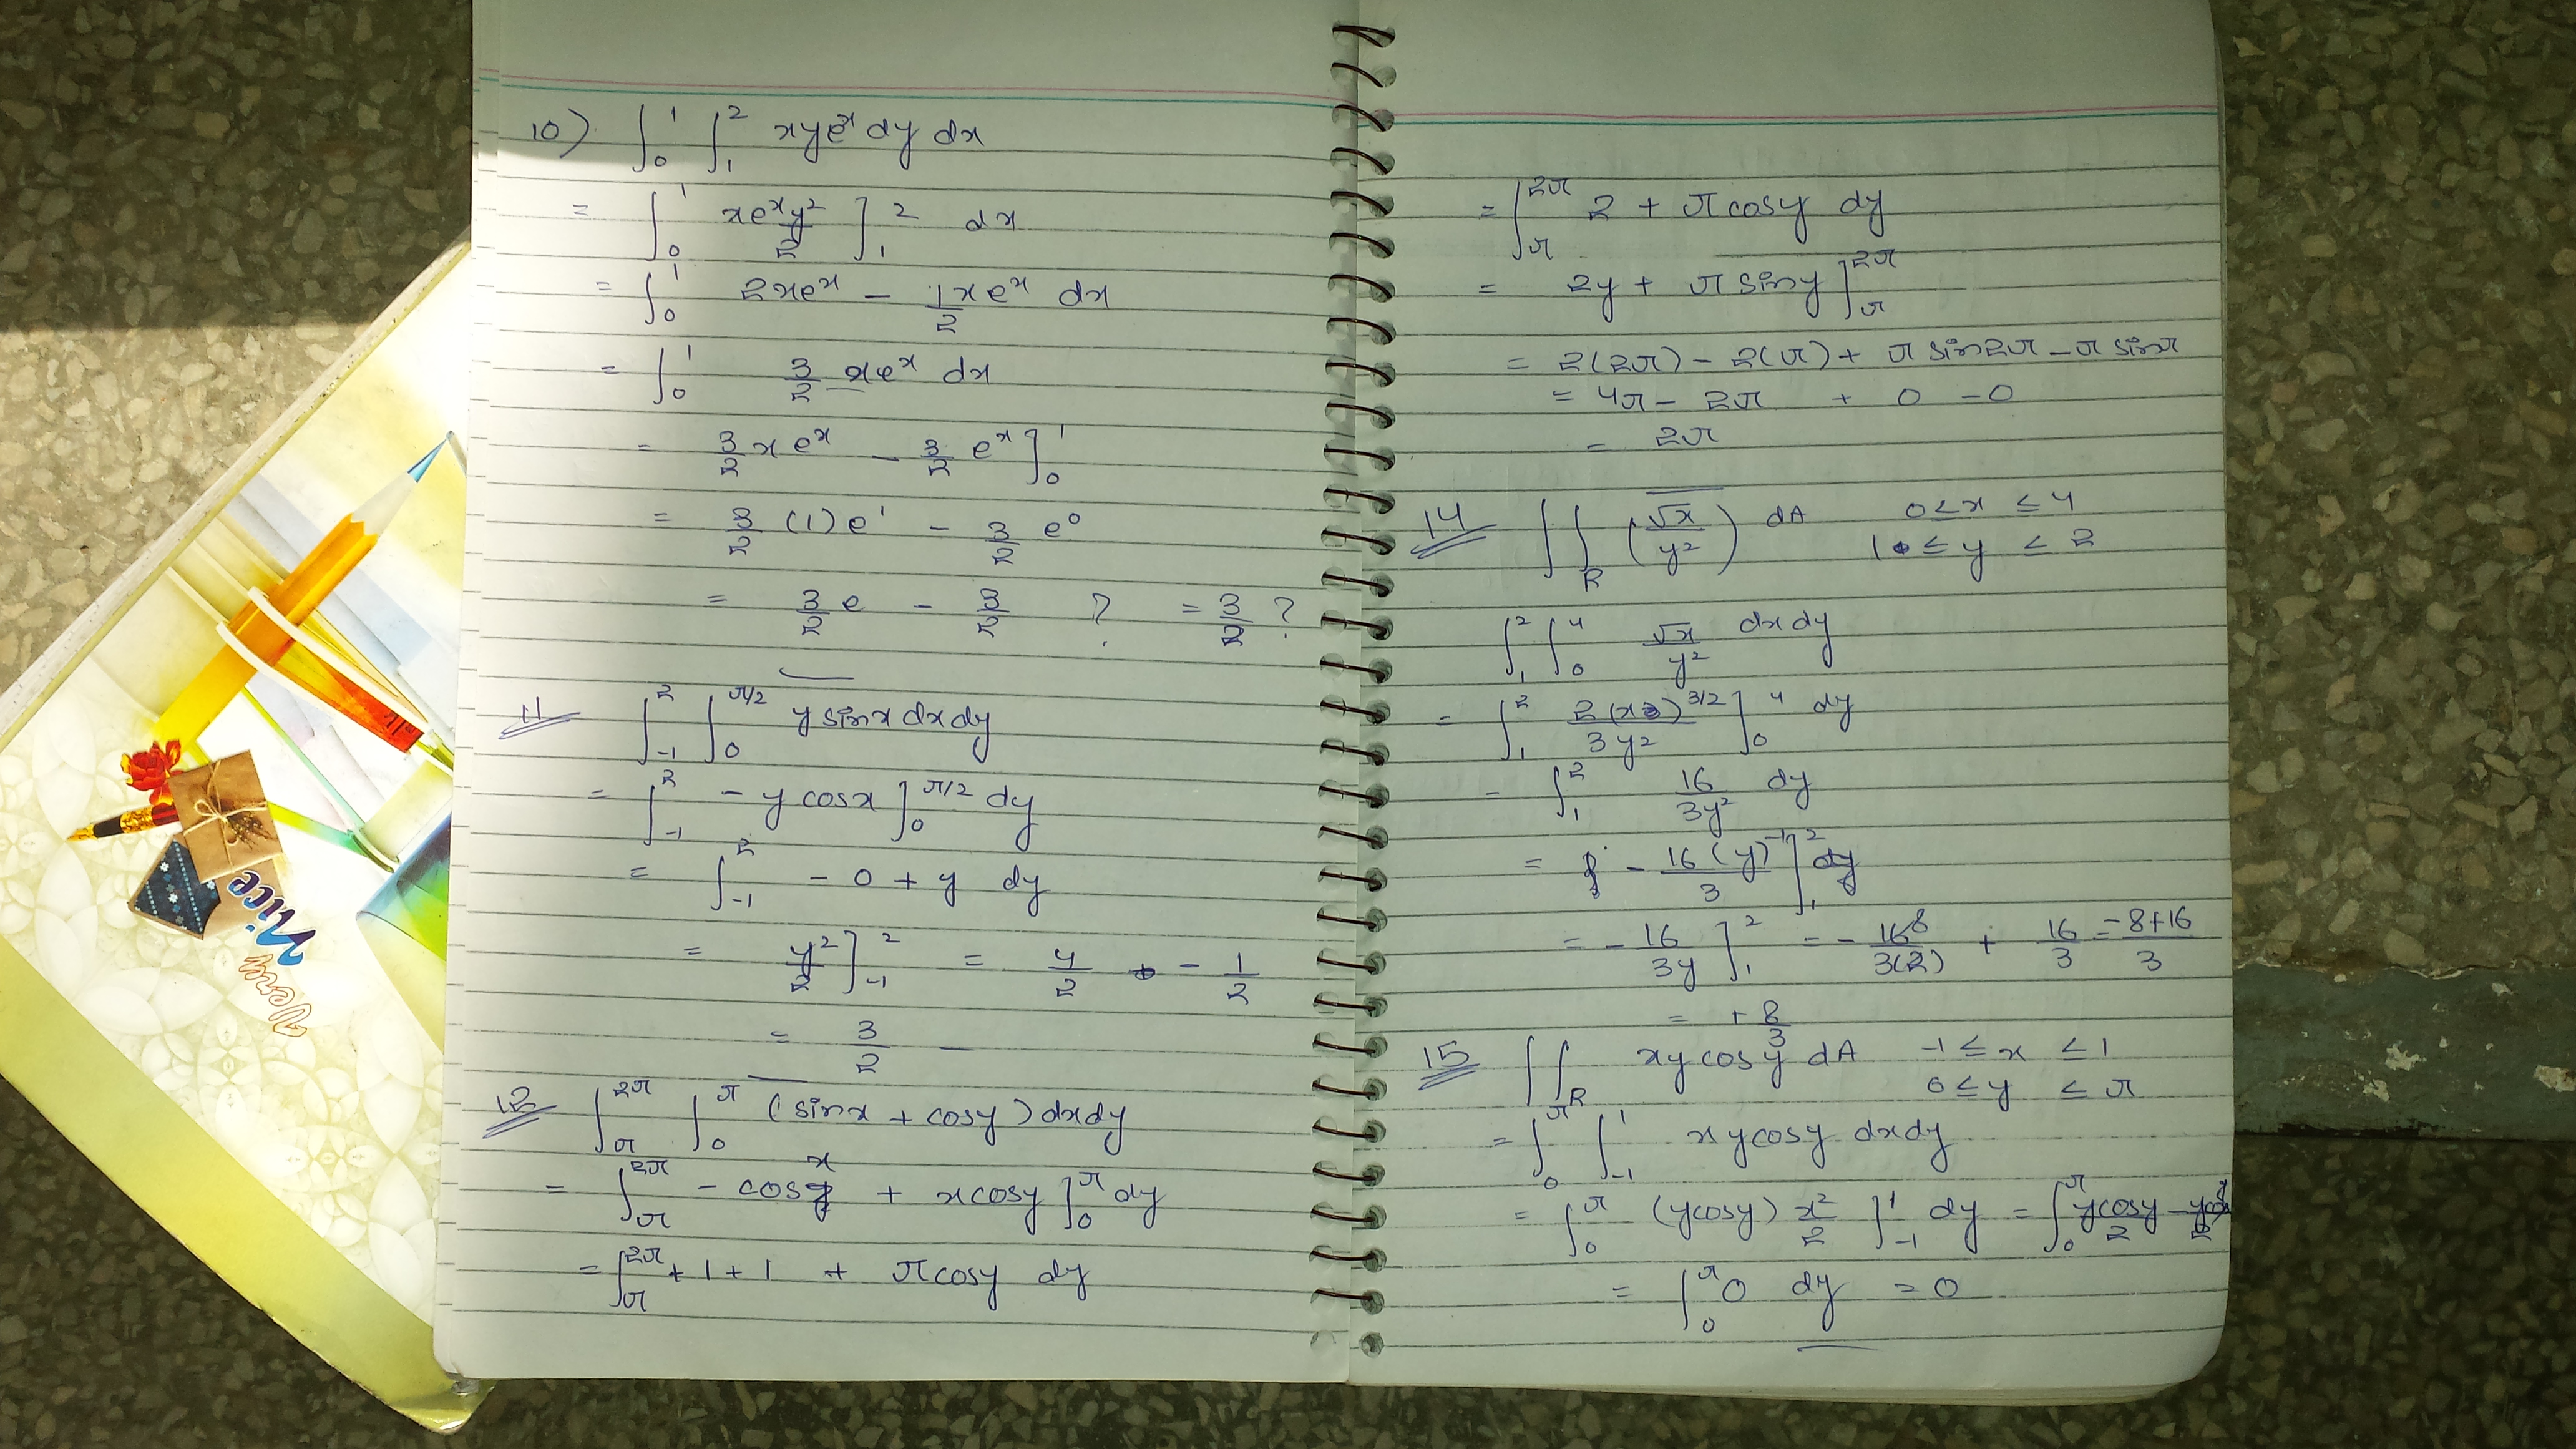 10) ∫₀¹ ∫₁² xyeˣ dy dx
= ∫₀¹ xeˣy²/2 ]₁² dx
= ∫₀¹ 2xeˣ - 1/2 xeˣ dx
= ∫₀¹ 3/2 xeˣ dx
= 3/2 x eˣ - 3/2 eˣ ]₀¹
= 3/2 (1) e¹ - 3/2 e⁰
= 3/2 e - 3/2 ? = 3/2 ?
11 ∫₋₁² ∫₀^(π/2) y sinx dx dy
= ∫₋₁² - y cosx ]₀^(π/2) dy
= ∫₋₁² - 0 + y dy
= y²/2 ]₋₁² = 4/2 - 1/2
= 3/2
12 ∫_π^(2π) ∫₀^π (sinx + cosy) dx dy
= ∫_π^(2π) - cos x + x cosy ]₀^π dy
= ∫_π^(2π) + 1 + 1 + π cosy dy
= ∫_π^(2π) 2 + π cosy dy
= 2y + π siny ]_π^(2π)
= 2(2π) - 2(π) + π sin2π - π sinπ
= 4π - 2π + 0 - 0
= 2π
14 ∫∫_R (√x/y²) dA 0≤x ≤4
1≤ y ≤ 2
∫₁² ∫₀⁴ √x/y² dx dy
= ∫₁² 2(x)^(3/2)/3y² ]₀⁴ dy
= ∫₁² 16/3y² dy
= - 16(y)⁻¹/3 ]₁²
= - 16/3y ]₁² = - 16 8/3(2) + 16/3 = -8+16/3
= + 8/3
15 ∫∫_R xy cosy dA -1 ≤ x ≤ 1
0 ≤ y ≤ π
= ∫₀^π ∫₋₁¹ xy cosy dx dy
= ∫₀^π (y cosy) x²/2 ]₋₁¹ dy = ∫₀^π y cosy/2 - y cosy/2
= ∫₀^π 0 dy = 0
Very
Nice